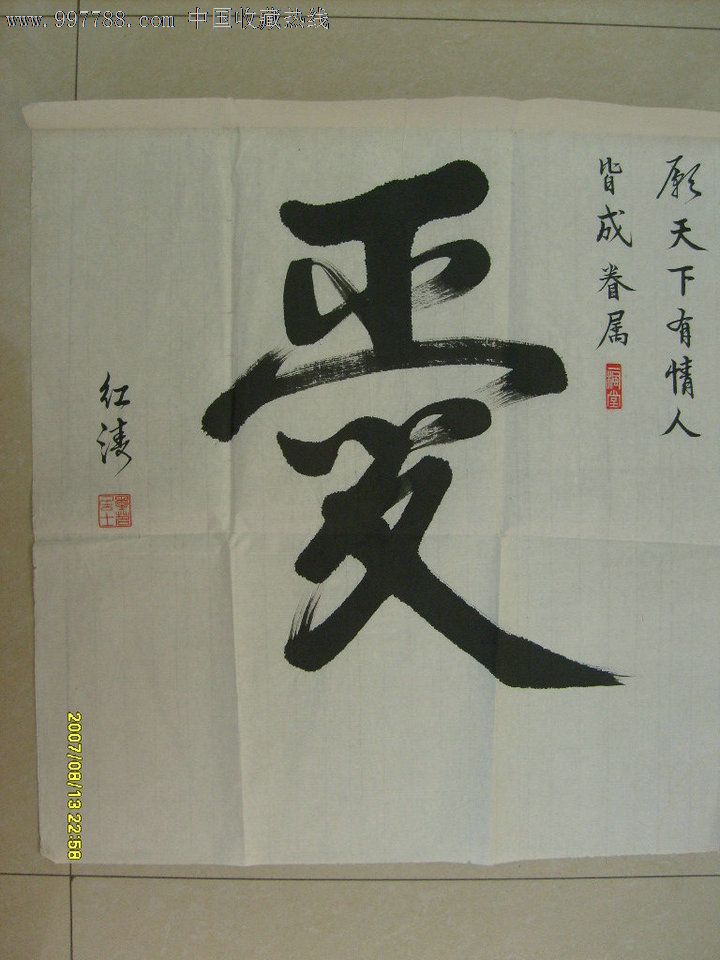 www.997788.com 中国收藏热线
愿天下有情人
皆成眷属
爱
红涛
2007/08/13 22:58